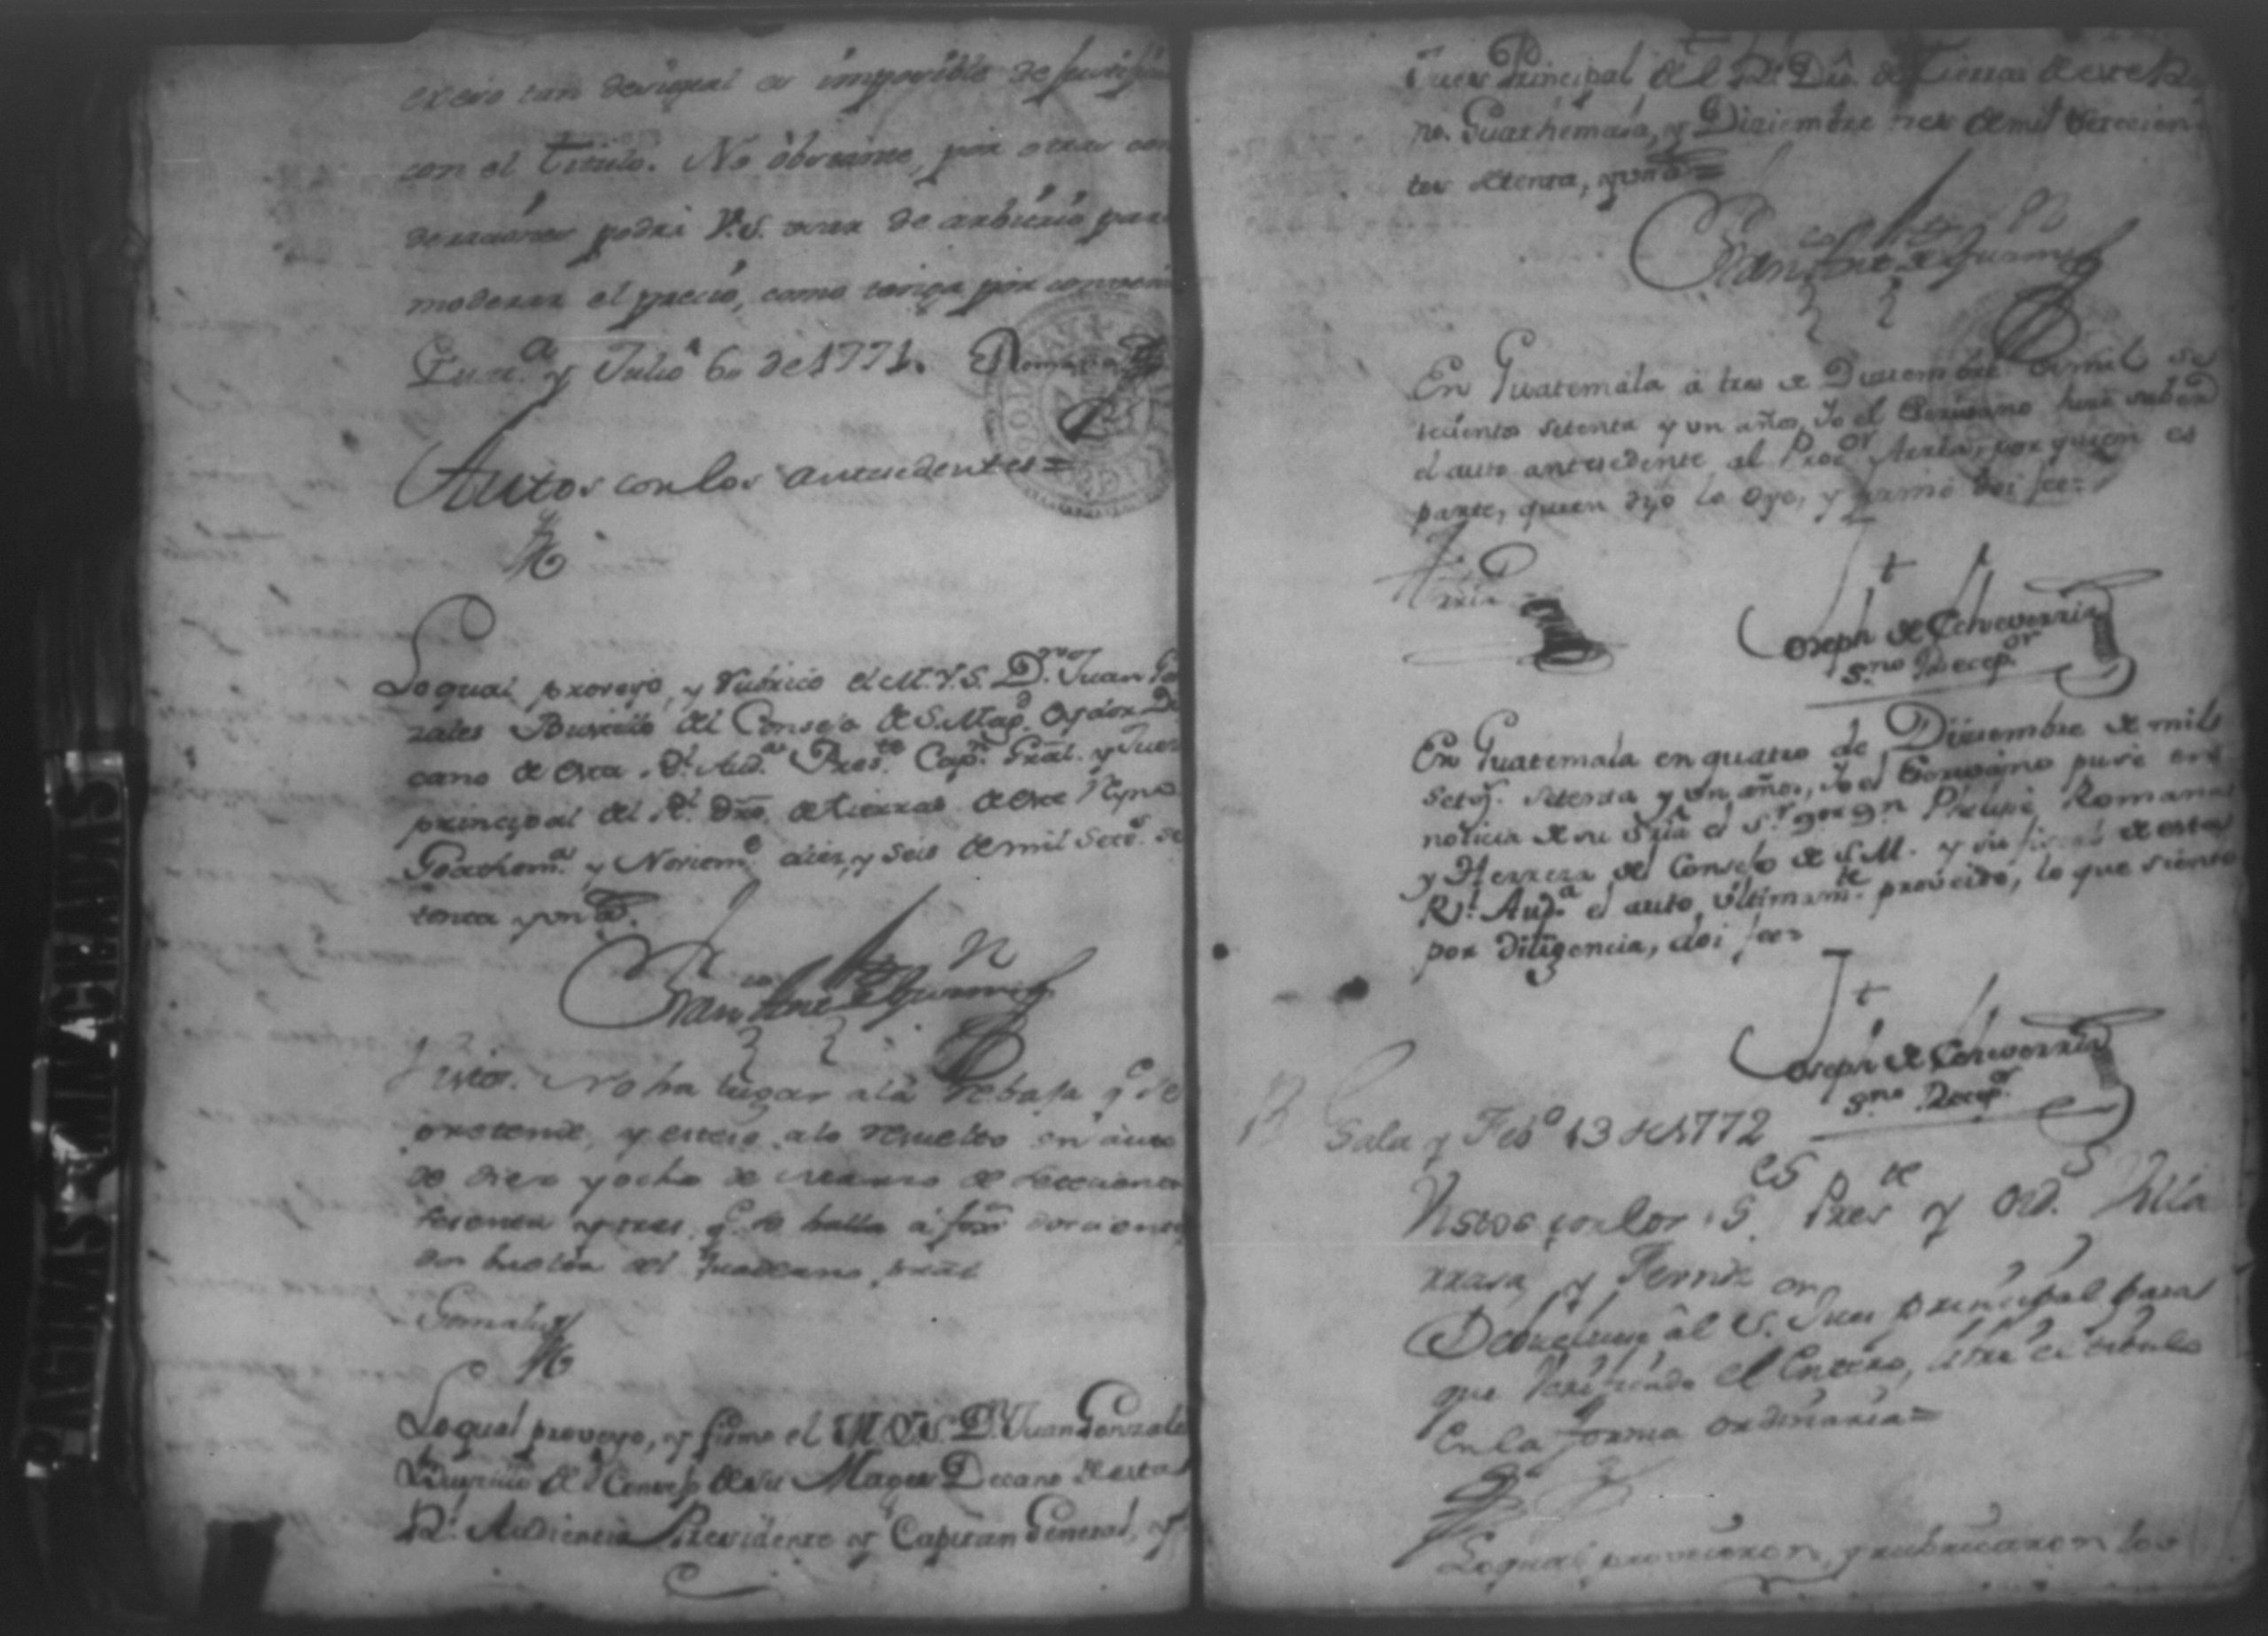 exeso tan desigual es imposible de
con el Titulo. No obstante, por otras con
deraciones podrá V.S. usar de arbitrio para
moderar el precio, como tenga por
y Julio 6 de 1771. Romana
Autos con los antecedentes=
Lo qual proveyo, y rubricó el M.Y.S. Dn. Juan Gon
zales Bustillo del Consejo de S. Magd. Oydor De
cano de esta Rl. Auda. Preste. Capn. Gral. y Juez
principal del Rl. Dro. de tierras de este Reyno
Goathema. y Noviembe. diez, y seis de mil setecs. se
tenta y un as.
Vistos. No ha lugar a la rebaja qe. se
pretende, y estese a lo resuelto en auto
de diez y ocho de de setecientos
setenta y tres, qe. se halla a fox.
dos buelta del quaderno
Gonzalez
Lo qual proveyo, y firmo el M.Y.S. Dn. Juan Gonzale
Bustillo del Consejo de su Magd. Decano de esta
Rl. Audiencia Presidente y Capitan General, y
Juez Principal del Rl. Dro. de Tierras de este Rey
no. Guathemala, y Diziembre tres de mil setecien
tos setenta, y un as=
En Guatemala á tres de Diziembre de mil se
tecientos setenta y un años, Yo el Escrivano hize saber
el auto antecedente al Procor. Arria, por quien es
parte, quien dijo lo oye, y firmó doi fee=
Arria
Joseph de Echeverria
Sno. Recepor.
En Guatemala en quatro de Diziembre de mil
setecs. setenta y un años, Yo el Escrivano puse en
noticia de su Sria el Sr. Phelipe Romana
y Herrera del Consejo de S.M. y su fiscal de esta
Rl. Auda. el auto ultimamte. proveido, lo que siento
por diligencia, doi fee=
Joseph de Echeverria
Sno. Recepor.
Sala y Febo. 13 de 1772
Vistos por los Ses. Preste. y Ods. Villa
rrasa, y
Debuelvase al Sor. Juez principal para
que Verificado el Entero, libre el titulo
en la forma ordinaria=
Lo qual proveieron, y rubricaron los